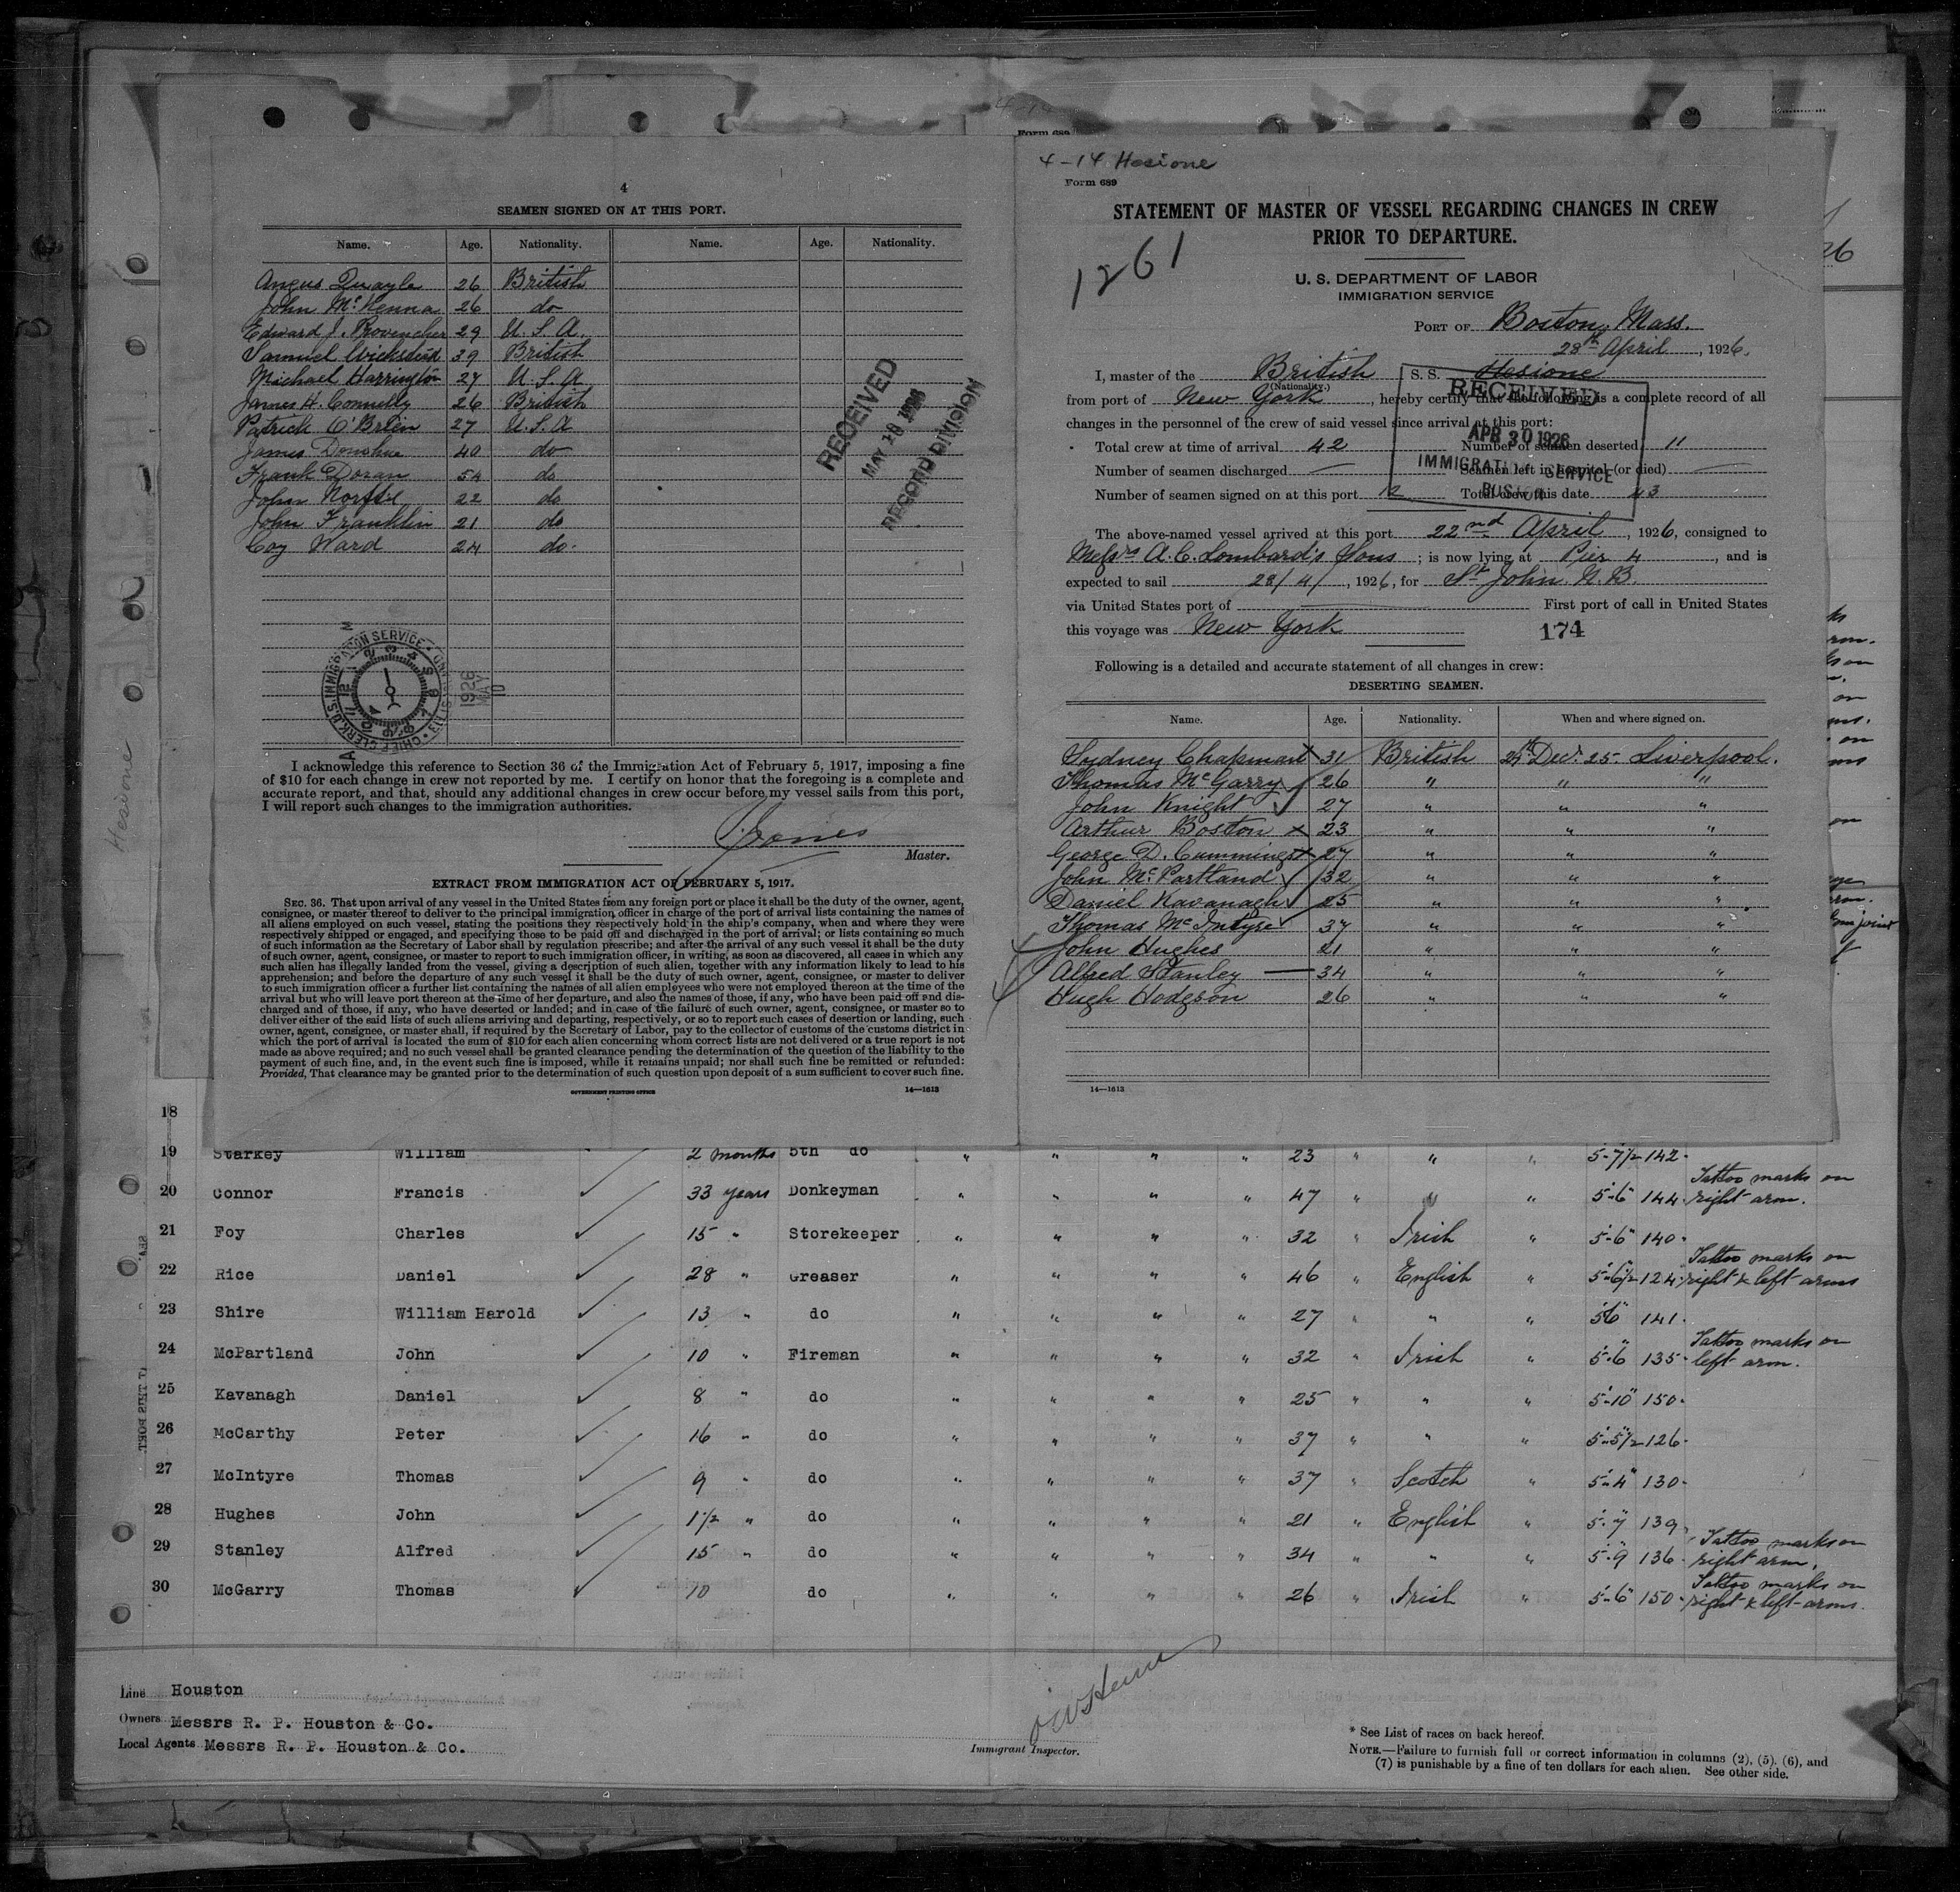 4
SEAMEN SIGNED ON AT THIS PORT.
Name. Age. Nationality. Name. Age. Nationality.
Angus Quayle 26 British
John McKenna 26 do
Edward J. Provencher 29 U.S.A.
Samuel 39 British
Michael Harrington 27 U.S.A
James H. Connelly 26 British
Patrick O'Brien 27 U.S.A
James Donohue 40 do
Frank Doran 54 do
John 22 do
John Franklin 21 do
Coy Ward 24 do.
RECEIVED
MAY 10 1926
RECORD DIVISION
CHIEF CLERK U.S. IMMIGRATION SERVICE
1926
MAY
10
I acknowledge this reference to Section 36 of the Immigration Act of February 5, 1917, imposing a fine
of $10 for each change in crew not reported by me. I certify on honor that the foregoing is a complete and
accurate report, and that, should any additional changes in crew occur before my vessel sails from this port,
I will report such changes to the immigration authorities.
Jones
Master.
EXTRACT FROM IMMIGRATION ACT OF FEBRUARY 5, 1917.
SEC. 36. That upon arrival of any vessel in the United States from any foreign port or place it shall be the duty of the owner, agent,
consignee, or master thereof to deliver to the principal immigration officer in charge of the port of arrival lists containing the names of
all aliens employed on such vessel, stating the positions they respectively hold in the ship's company, when and where they were
respectively shipped or engaged, and specifying those to be paid off and discharged in the port of arrival; or lists containing so much
of such information as the Secretary of Labor shall by regulation prescribe; and after the arrival of any such vessel it shall be the duty
of such owner, agent, consignee, or master to report to such immigration officer, in writing, as soon as discovered, all cases in which any
such alien has illegally landed from the vessel, giving a description of such alien, together with any information likely to lead to his
apprehension; and before the departure of any such vessel it shall be the duty of such owner, agent, consignee, or master to deliver
to such immigration officer a further list containing the names of all alien employees who were not employed thereon at the time of the
arrival but who will leave port thereon at the time of her departure, and also the names of those, if any, who have been paid off and dis-
charged and of those, if any, who have deserted or landed; and in case of the failure of such owner, agent, consignee, or master so to
deliver either of the said lists of such aliens arriving and departing, respectively, or so to report such cases of desertion or landing, such
owner, agent, consignee, or master shall, if required by the Secretary of Labor, pay to the collector of customs of the customs district in
which the port of arrival is located the sum of $10 for each alien concerning whom correct lists are not delivered or a true report is not
made as above required; and no such vessel shall be granted clearance pending the determination of the question of the liability to the
payment of such fine, and, in the event such fine is imposed, while it remains unpaid; nor shall such fine be remitted or refunded:
Provided, That clearance may be granted prior to the determination of such question upon deposit of a sum sufficient to cover such fine.
GOVERNMENT PRINTING OFFICE 14—1613
4-14 Hesione
Form 689
STATEMENT OF MASTER OF VESSEL REGARDING CHANGES IN CREW
PRIOR TO DEPARTURE.
1261
U. S. DEPARTMENT OF LABOR
IMMIGRATION SERVICE
PORT OF Boston, Mass.
28th April, 1926.
I, master of the British S. S. Hesione
(Nationality.)
from port of New York, hereby certify that the following is a complete record of all
changes in the personnel of the crew of said vessel since arrival at this port:
Total crew at time of arrival 42 Number of seamen deserted 11
Number of seamen discharged — Seamen left in hospital (or died) —
Number of seamen signed on at this port 12 Total crew this date 43
RECEIVED
APR 30 1926
IMMIGRATION SERVICE
BOSTON
The above-named vessel arrived at this port 22nd April, 1926, consigned to
Messrs A. C. Lombard's Sons; is now lying at Pier 4, and is
expected to sail 28/4/, 1926, for St. John. N.B.
via United States port of — First port of call in United States
this voyage was New York
174
Following is a detailed and accurate statement of all changes in crew:
DESERTING SEAMEN.
Name. Age. Nationality. When and where signed on.
Sydney Chapman 31 British Dec. 25 Liverpool.
Thomas McGarry 26 " " "
John Knight 27 " " "
Arthur Boston 23 " " "
George D. Cummings 27 " " "
John McPartland 32 " " "
Daniel Kavanagh 25 " " "
Thomas McIntyre 37 " " "
John Hughes 21 " " "
Alfred Stanley 34 " " "
Hugh Hodgson 26 " " "
14—1613
Hesione
18
19 Starkey William 2 months 5th do " " " " 23 " " " 5-7½ 142
20 Connor Francis 33 years Donkeyman " " " " 47 " " " 5-6 144 Tattoo marks on right arm.
21 Foy Charles 15 " Storekeeper " " " " 32 " Irish " 5-6 140
22 Rice Daniel 28 " Greaser " " " " 46 " English " 5-6½ 124 Tattoo marks on right & left arms
23 Shire William Harold 13 " do " " " " 27 " " " 5 6 141
24 McPartland John 10 " Fireman " " " " 32 " Irish " 5-6 135 Tattoo marks on left arm.
25 Kavanagh Daniel 8 " do " " " " 25 " " " 5-10 150
26 McCarthy Peter 16 " do " " " " 37 " " " 5-5½ 126
27 McIntyre Thomas 9 " do " " " " 37 " Scotch " 5-4 130
28 Hughes John 1½ " do " " " " 21 " English " 5-7 139
29 Stanley Alfred 15 " do " " " " 34 " " " 5-9 136 Tattoo marks on right arm.
30 McGarry Thomas 10 do " " " " 26 " Irish " 5-6 150 Tattoo marks on right & left arms.
Line Houston
Owners Messrs R. P. Houston & Co.
Local Agents Messrs R. P. Houston & Co.
Immigrant Inspector.
* See List of races on back hereof.
NOTE.—Failure to furnish full or correct information in columns (2), (5), (6), and
(7) is punishable by a fine of ten dollars for each alien. See other side.